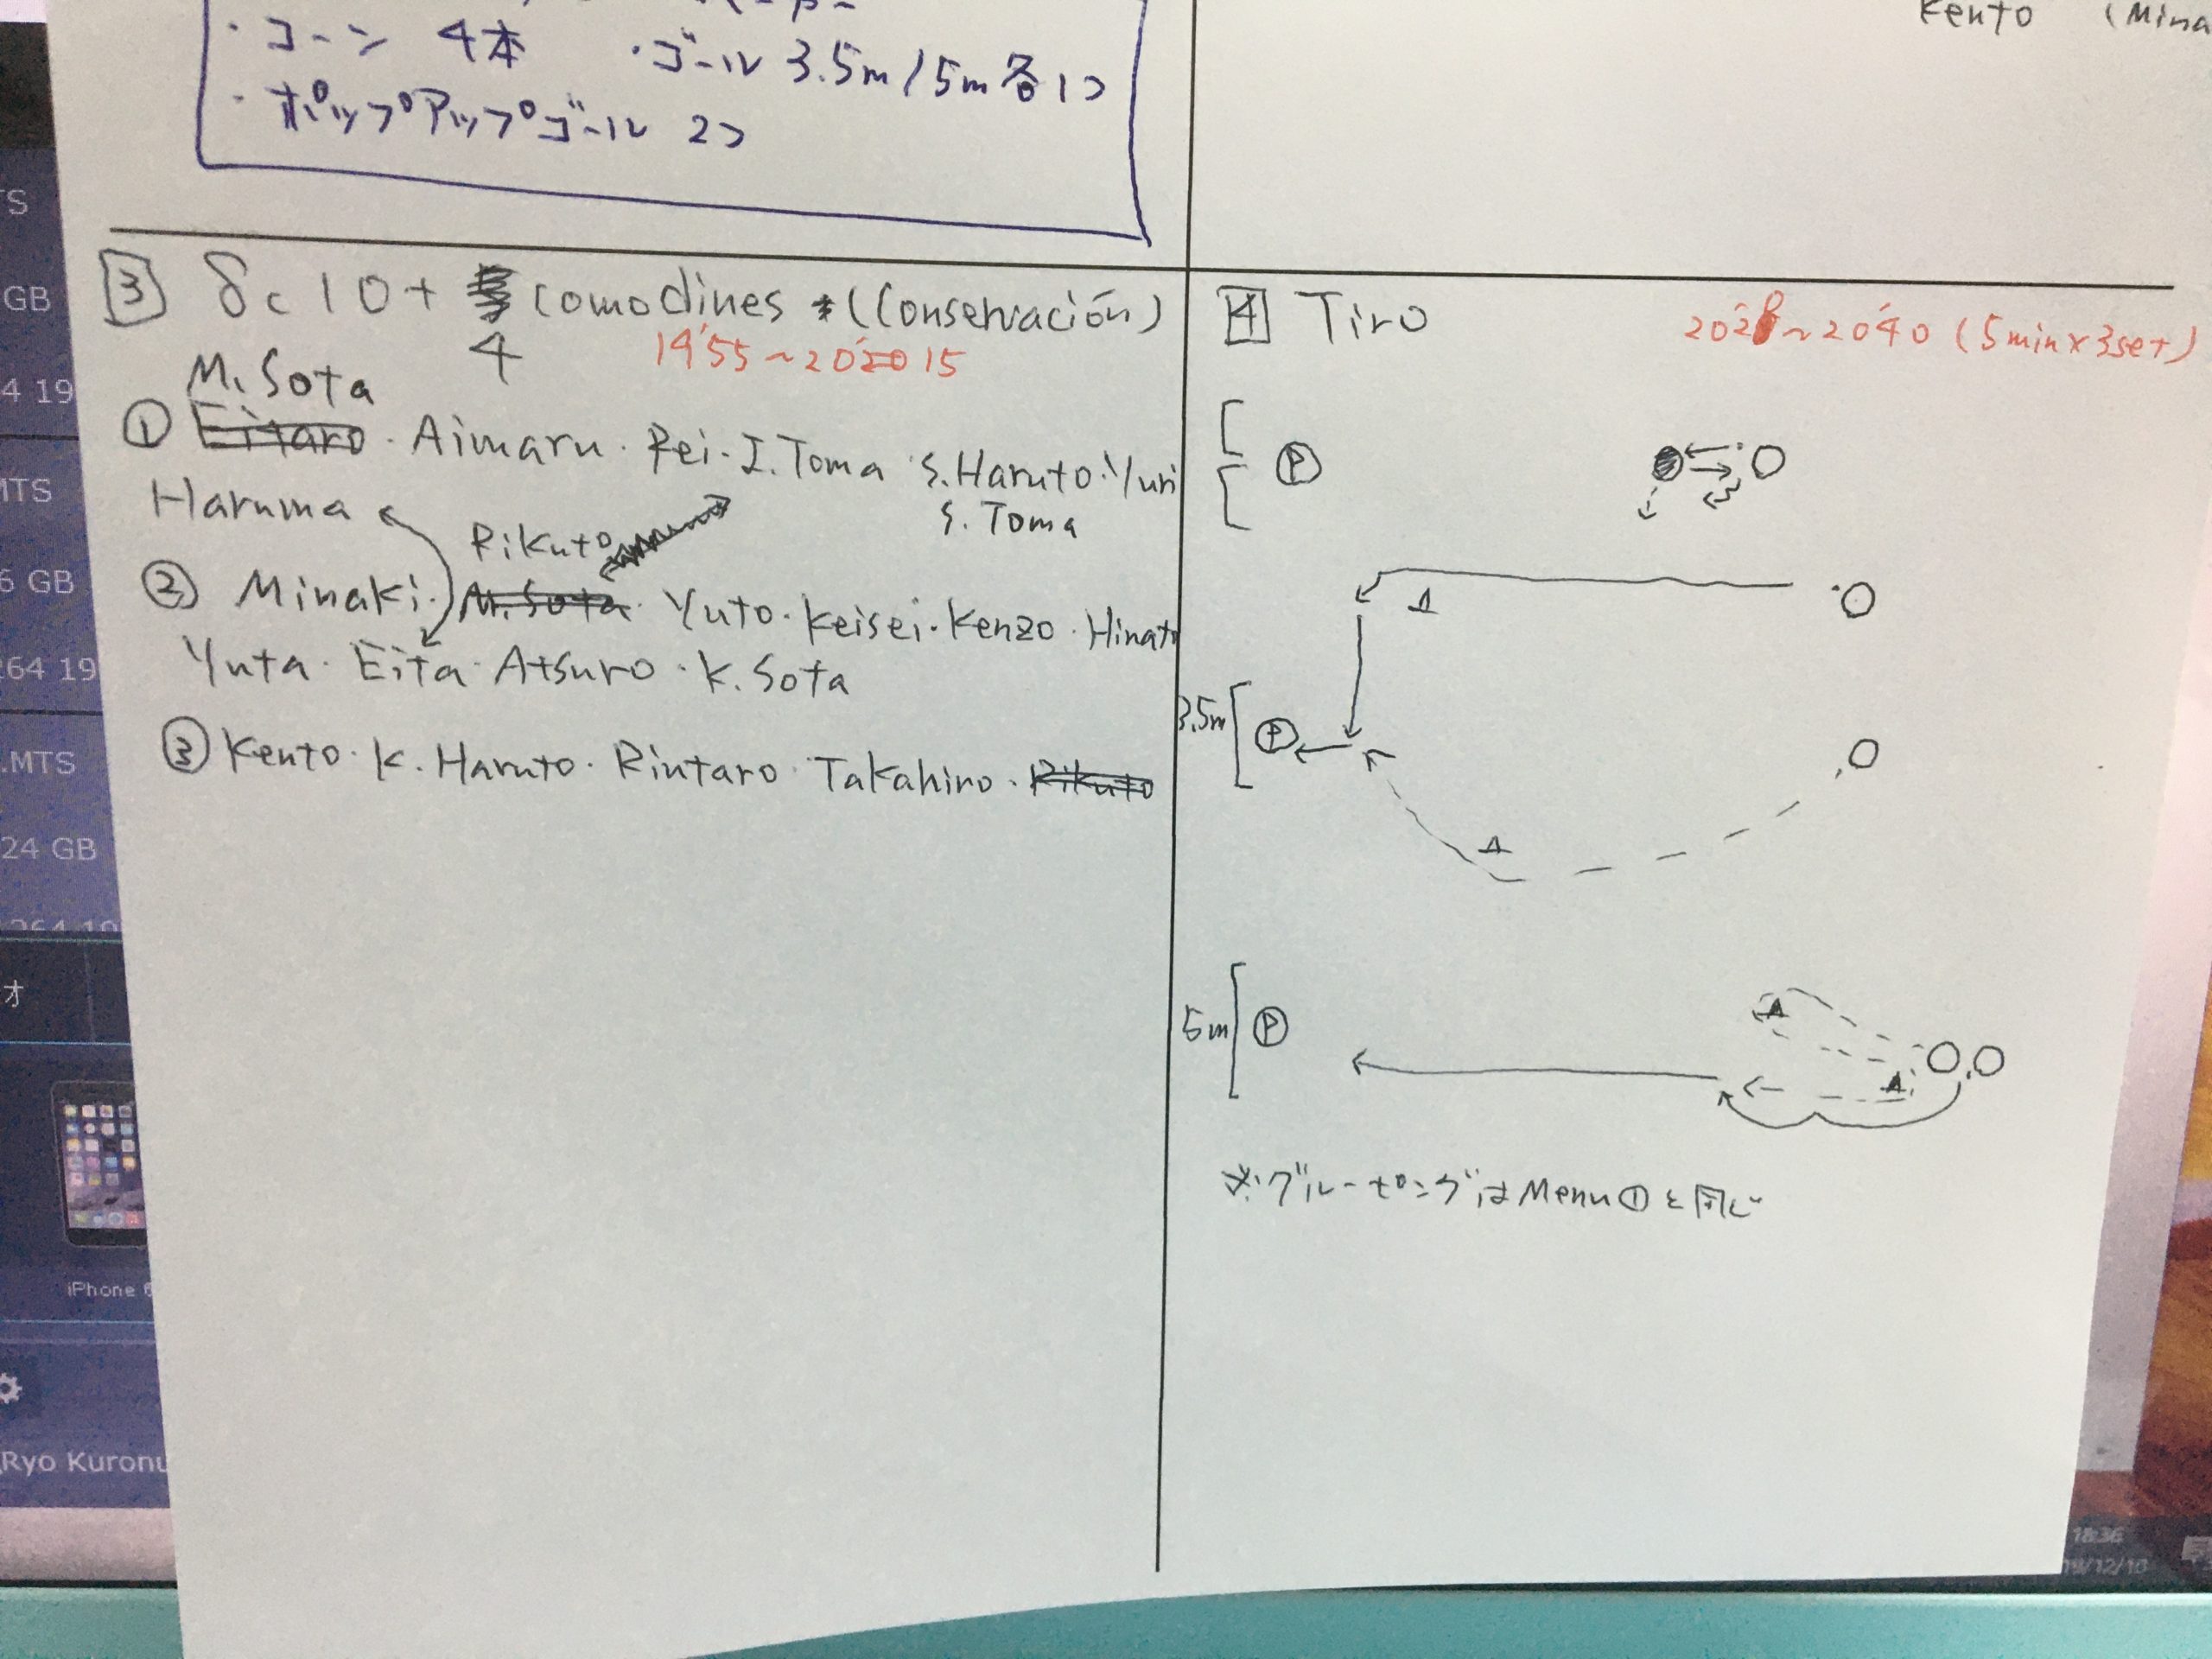 ・コーン 4本 ・ゴール 3.5m/5m各1コ
・ポップアップゴール 2コ
Kento (Mina
3 8c10+ comodines *(Conservación)
4
19'55~20' 15
M. Sota
① Eitaro・Aimaru・Rei・I.Toma・S.Haruto・Yuri
S. Toma
Haruma
Rikuto
② Minaki・M.Sota・Yuto・Keisei・Kenzo・Hinato
Yuta・Eita・Atsuro・K.Sota
③ Kento・K.Haruto・Rintaro・Takahiro・Rikuto
4 Tiro
~20'40 (5min×3set)
P
3.5m P
5m P
※グルーピングはMenu①と同じ
TS
GB
4 19
MTS
6 GB
264 19
.MTS
24 GB
264 19
オ
iPhone 6
Ryo Kuronu
18:36
19/12/10